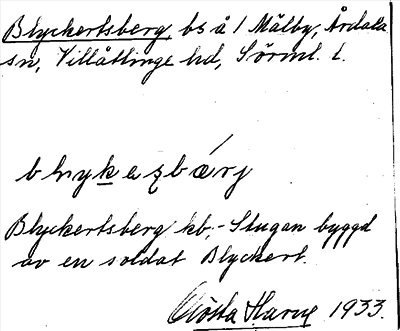 Blyckertsberg, bs å 1 Mälby, Årdala
sn, Villåttinge hd, Sörml. l.
blykeʂbärj
Blyckertsberg kb. - Stugan byggd
av en soldat Blyckert.
Gösta 1933.